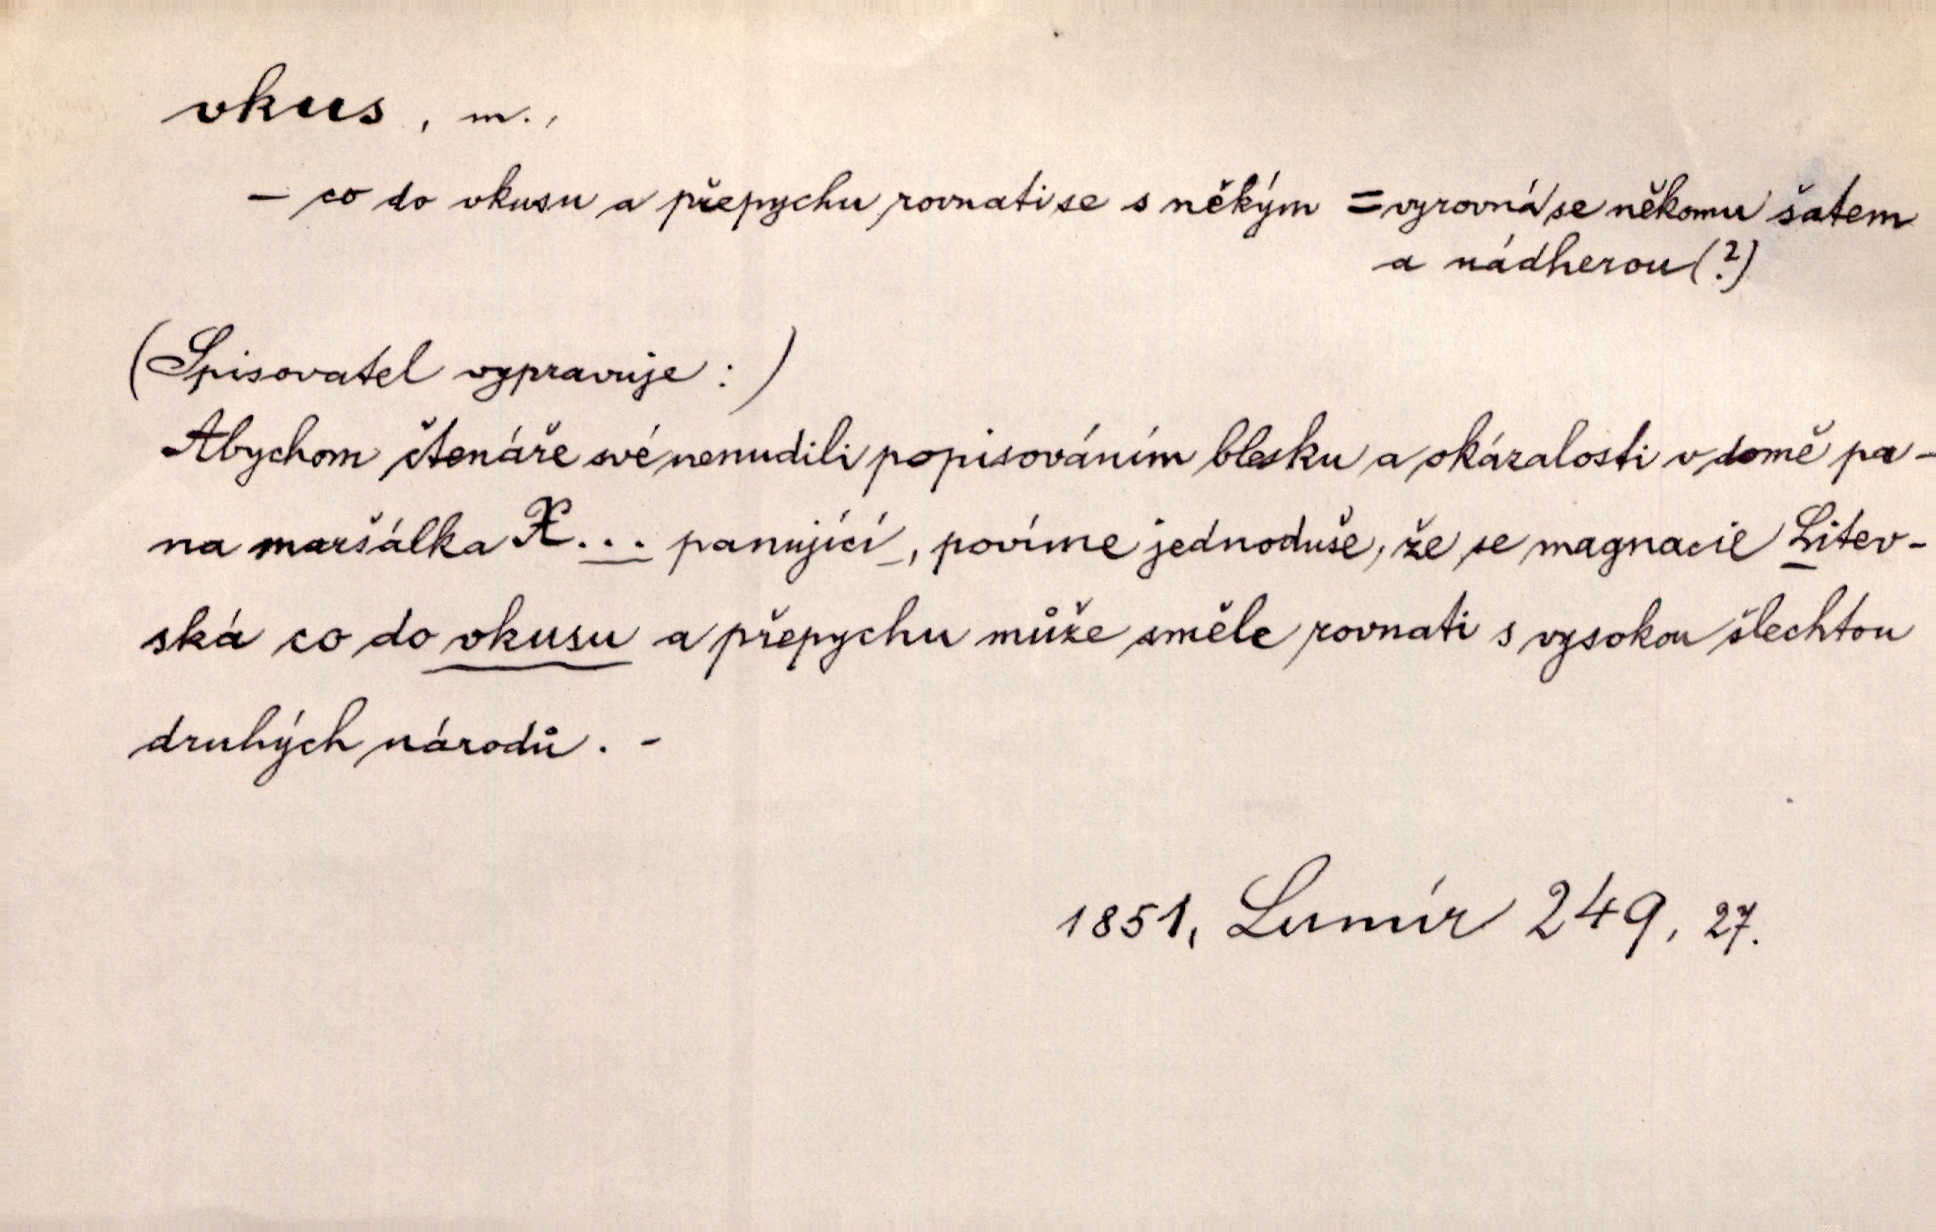 vkus, m.,
– co do vkusu a přepychu rovnati se s někým = vyrovná se někomu šatem
a nádherou (?)
(Spisovatel vypravuje :)
Abychom čtenáře své nenudili popisováním blesku a okázalosti v domě pa-
na maršálka X... panující, povíme jednoduše, že se magnacie Litev-
ská co do vkusu a přepychu může směle rovnati s vysokou šlechtou
druhých národů. -
1851, Lumír 249, 27.